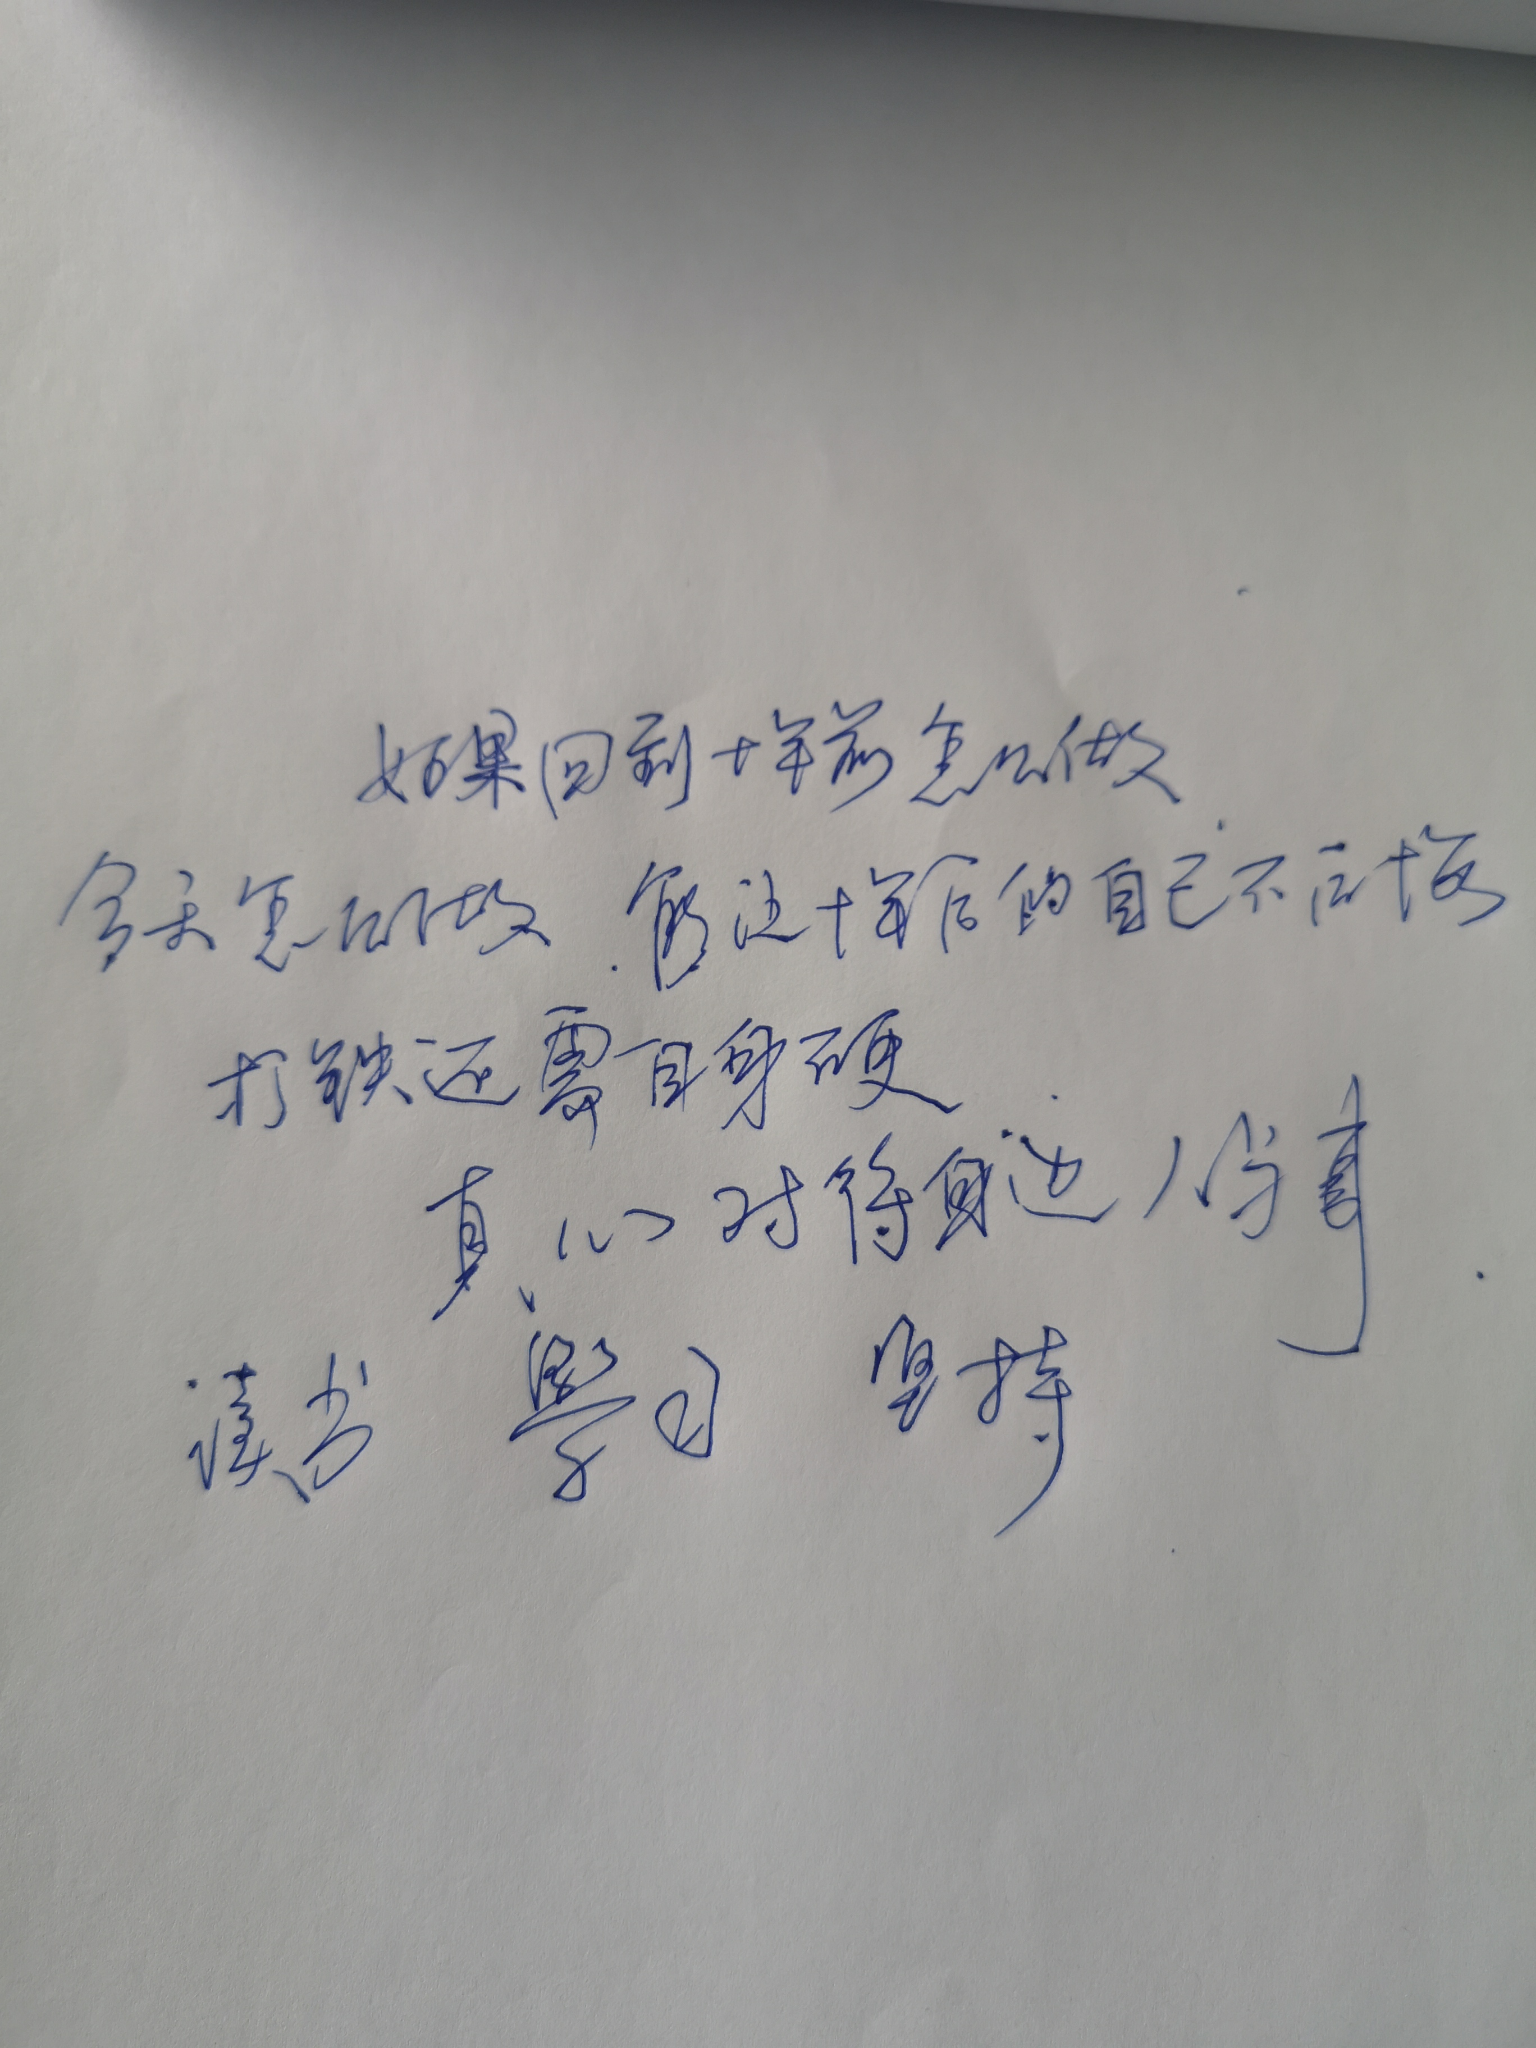 如果回到十年前怎么做
今天怎么做 能让十年后的自己不后悔
打铁还需自身硬
真心对待身边人与事
读书 学习 坚持